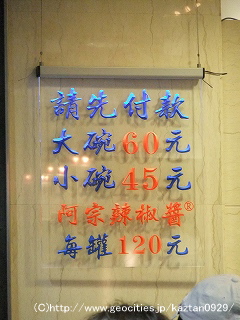 請先付款
大碗60元
小碗45元
阿宗辣椒醬®
每罐120元
(C)http://www.geocities.jp/kaztan0929